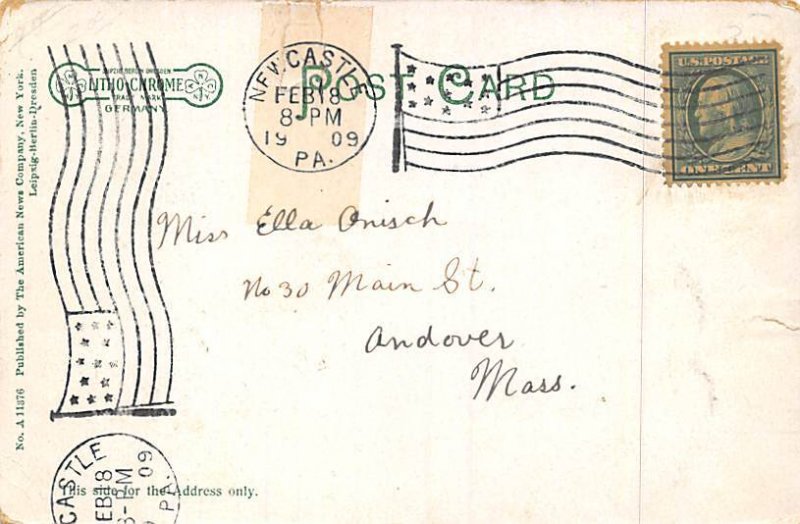 No. A 11376 Published by The American News Company, New York.
Leipzig-Berlin-Dresden
LEIPZIG BERLIN DRESDEN
LITHO-CHROME
TRADE MARK
GERMANY
POST CARD
NEW CASTLE
FEB 18
8-PM
19 09
PA.
U.S. POSTAGE
ONE CENT
Miss Ella Onisch
No 30 Main St.
Andover
Mass.
CASTLE
FEB 18
8-PM
09
PA.
This side for the Address only.